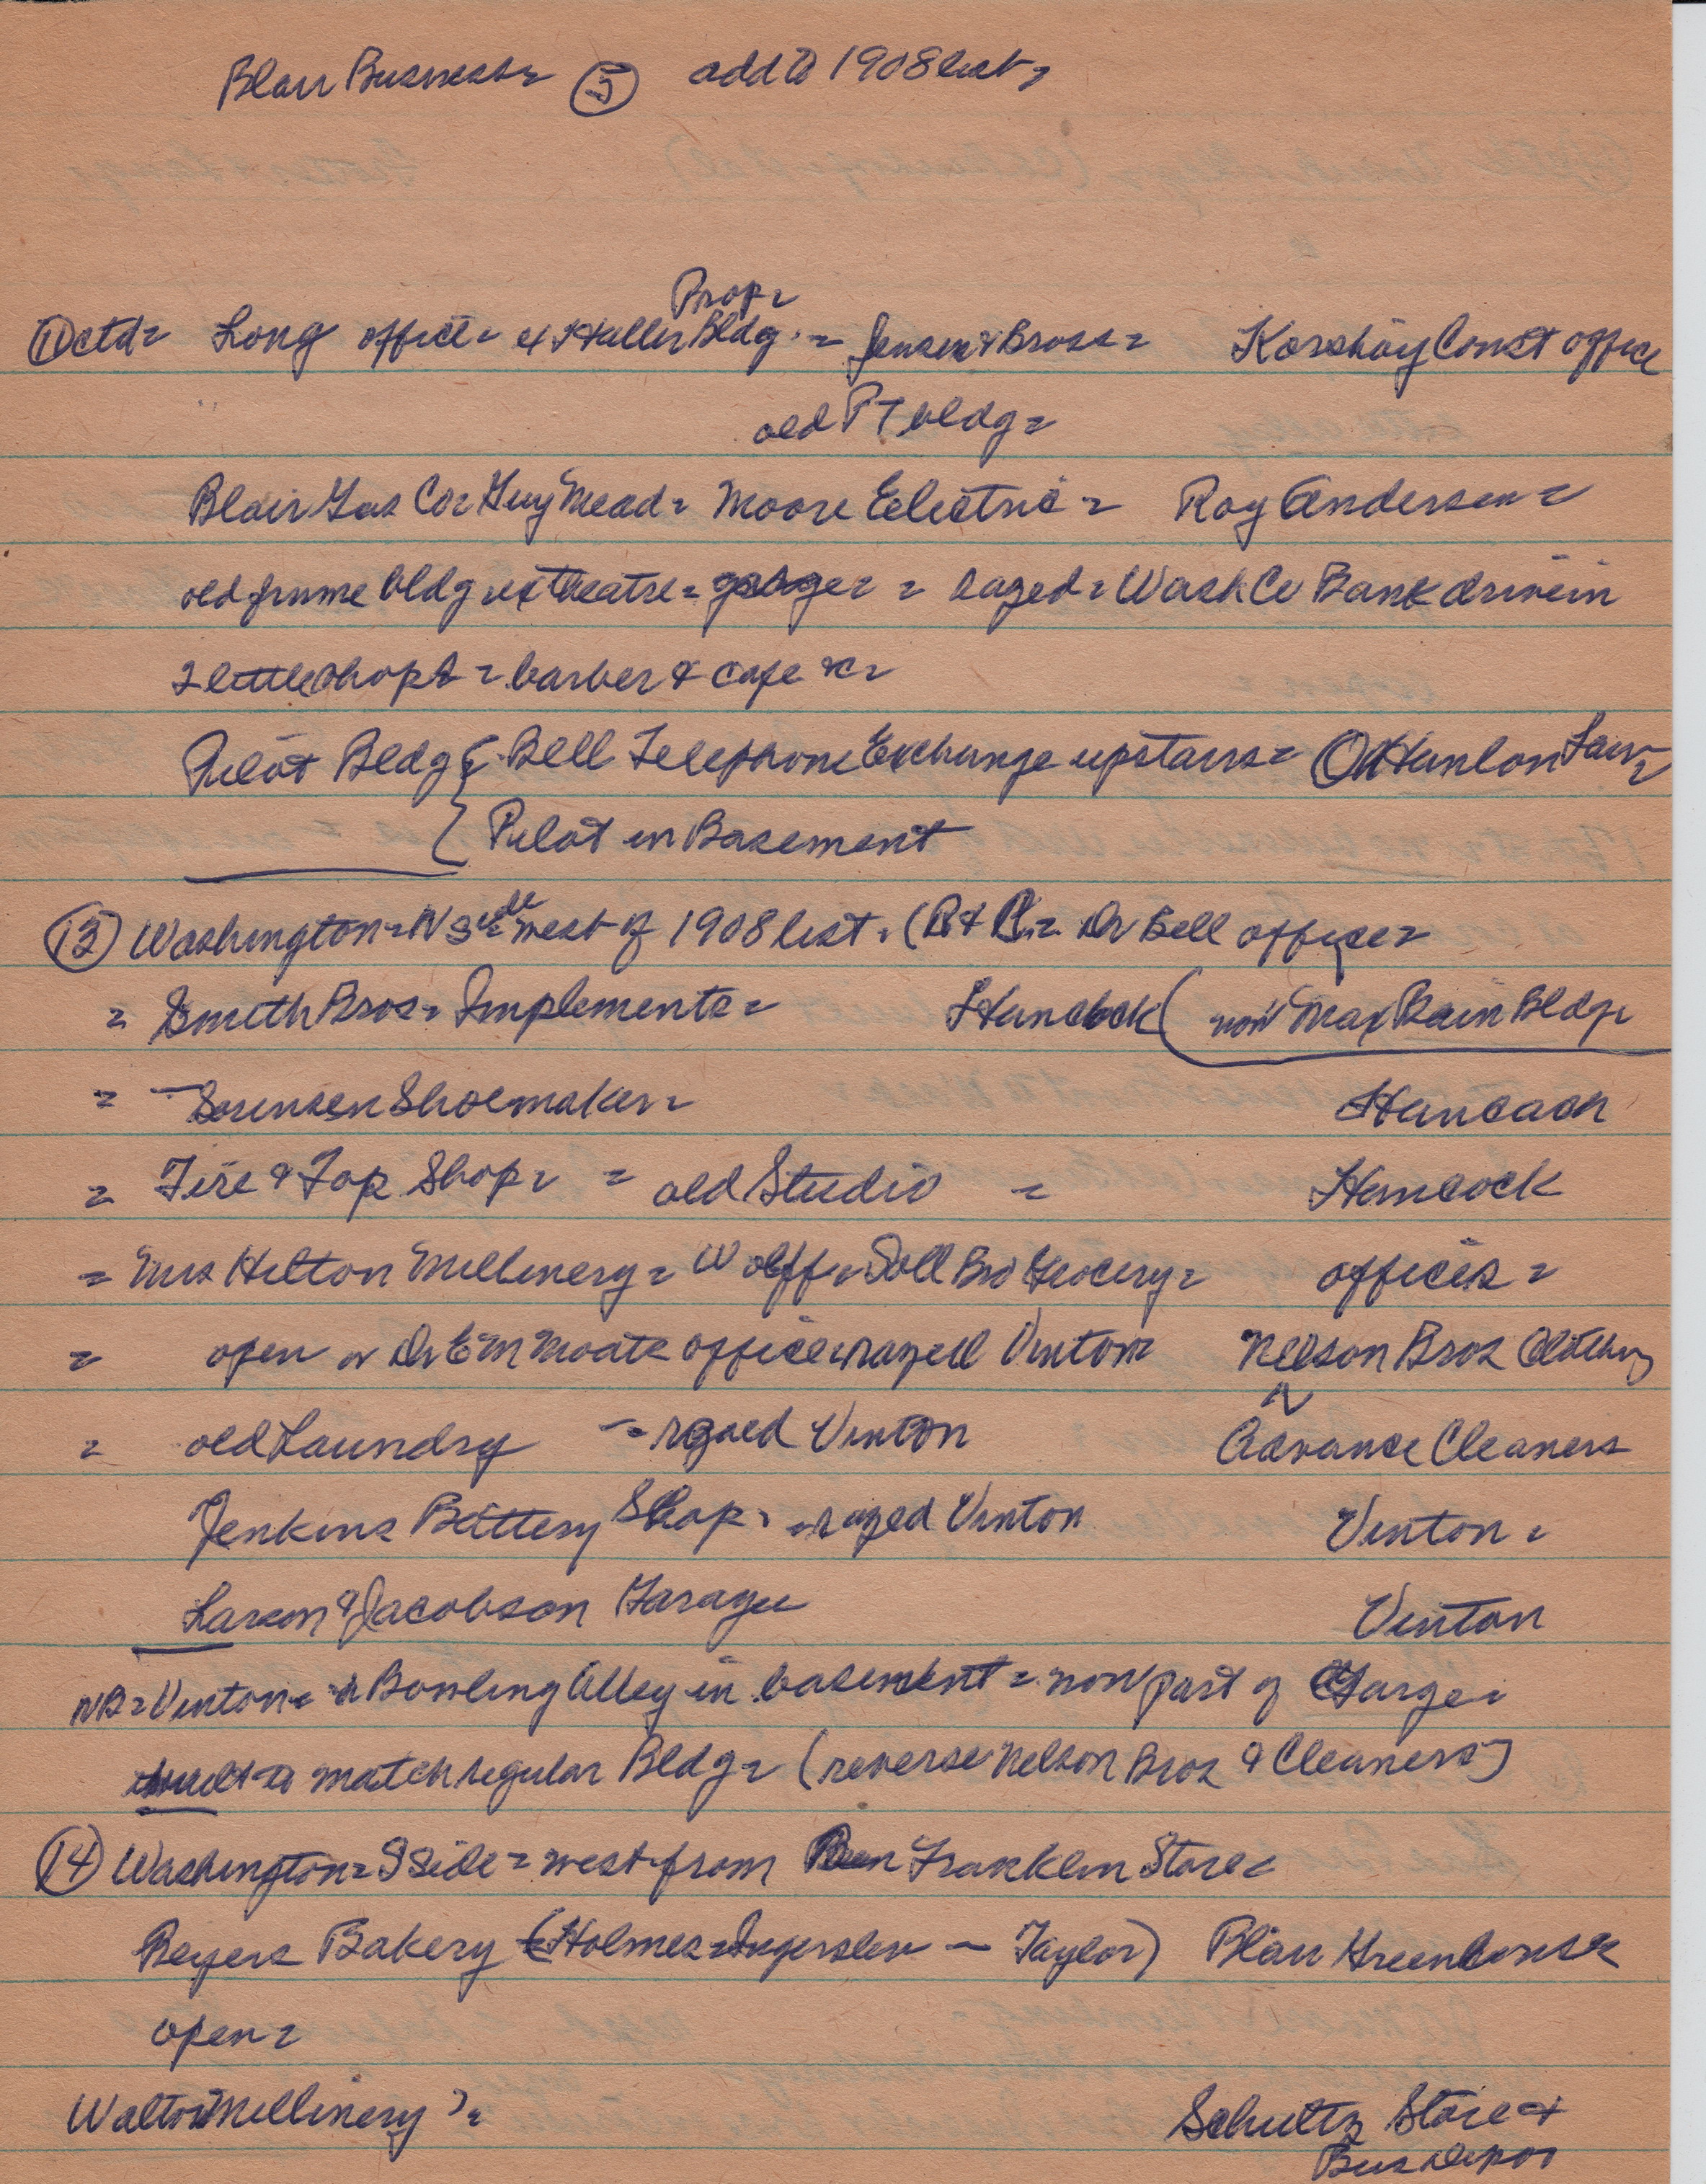 Blair Business = (5) add to 1908 list =
Prop =
(1) ctd = Long office = Haller Bldg. = Jensen & Bros = Korshoj Const office
old PT bldg =
Blair Gas Co = Guy Mead = Moore Electric = Roy Andersen =
old frame bldg ex theatre = = razed = Wash Co Bank drivein
2 little shops = barber & cafe &c =
Pilot Bldg { Bell Telephone Exchange upstairs = O'Hanlon Law =
{ Pilot in Basement
(13) Washington = N side = west of 1908 list = (R & R = Dr Bell office =
= Smith Bros = Implements = Hancock (now Max Bain Bldg =
= Sorensen Shoemaker = Hancock
= Tire & Top Shop = = old Studio = Hancock
= Mrs Hilton Millinery = Wolff = Doll Bro Grocery = offices =
= open or Dr E M office = razed Vinton Nelson Bros Clothing
= old Laundry = razed Vinton Advance Cleaners
Jenkins Battery Shop = razed Vinton Vinton =
Larson & Jacobson Garage Vinton
NB = Vinton = Bowling Alley in basement = now part of Garage =
built to match regular Bldg = (reverse Nelson Bros & Cleaners)
(14) Washington = S side = west from Ben Franklin Store =
Beyers Bakery (Holmes = Ingerslew - Taylor) Blair Greenhouse
open =
Walton Millinery ? = Schultz Store &
Bus Depot